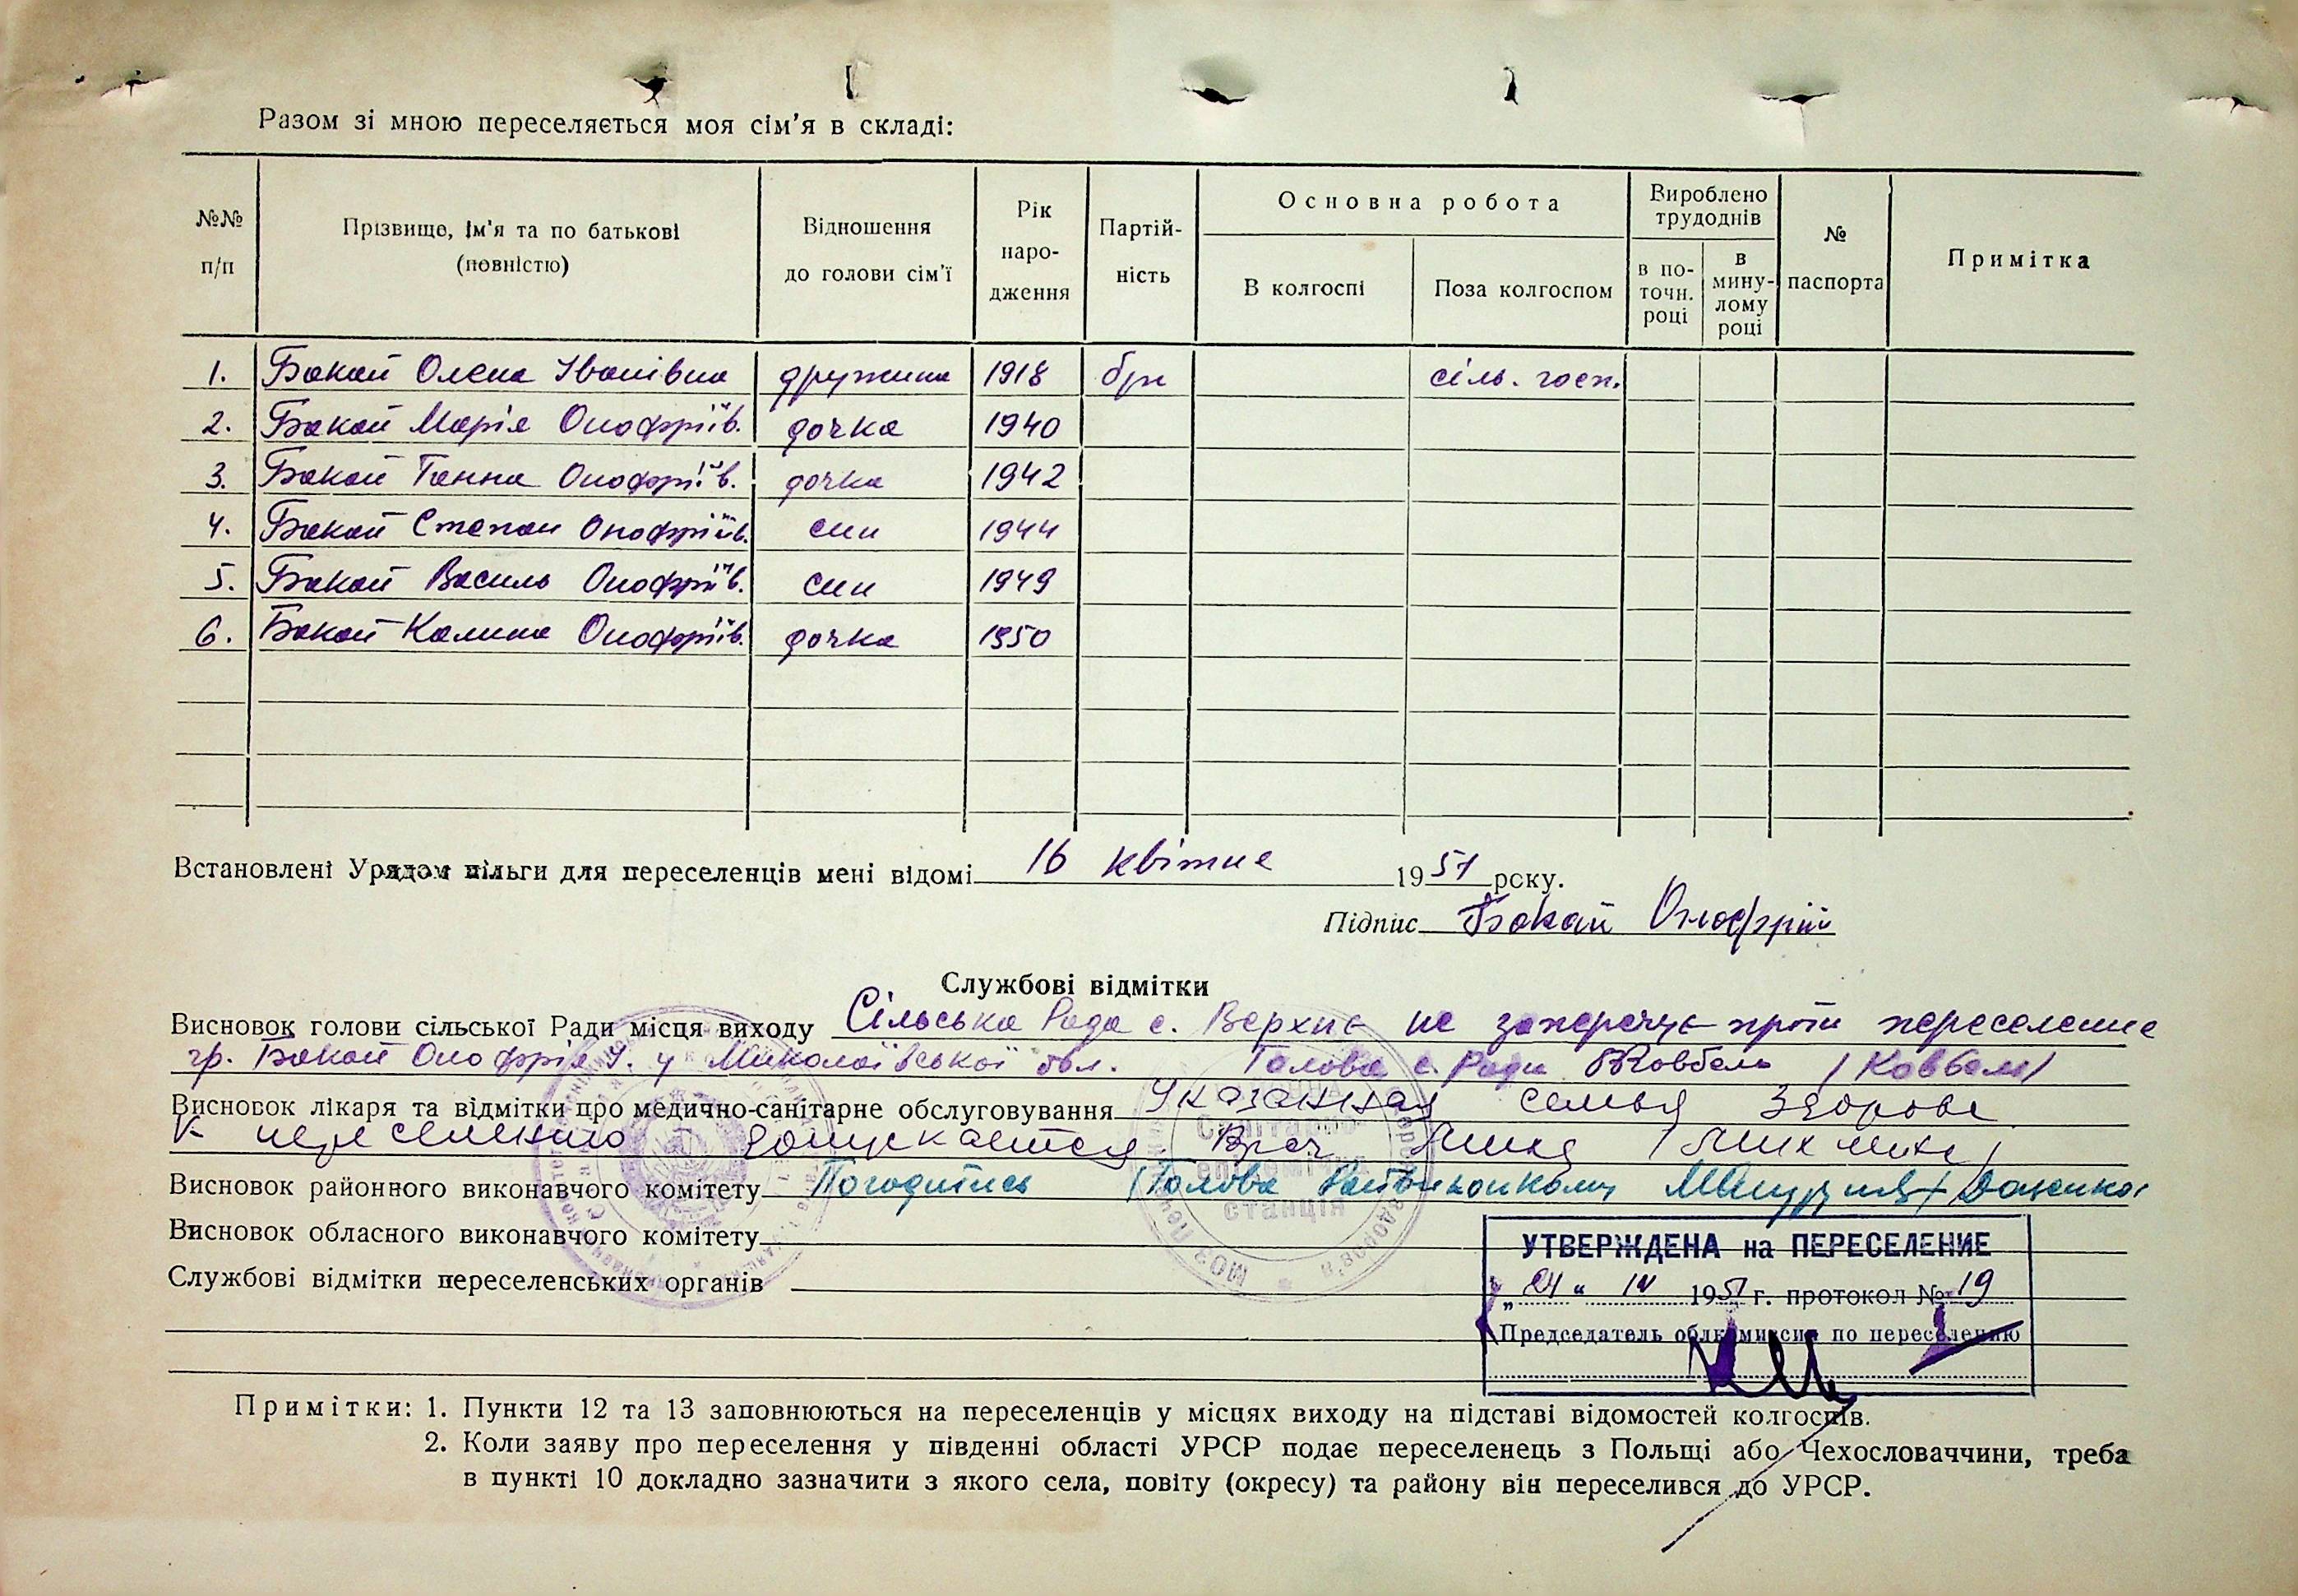 Разом зі мною переселяється моя сім'я в складі:
№№ п/п
Прізвище, ім'я та по батькові (повністю)
Відношення до голови сім'ї
Рік наро-дження
Партій-ність
Основна робота
В колгоспі
Поза колгоспом
Вироблено трудоднів
в по-точн. році
в мину-лому році
№ паспорта
Примітка
1. Бакай Олена Іванівна дружина 1918 бп сіль. госп.
2. Бакай Марія Онофріїв. дочка 1940
3. Бакай Ганна Онофріїв. дочка 1942
4. Бакай Степан Онофріїв. син 1944
5. Бакай Василь Онофріїв. син 1949
6. Бакай Калина Онофріїв. дочка 1950
Встановлені Урядом пільги для переселенців мені відомі 16 квітня 1951 року.
Підпис Бакай Онофрій
Службові відмітки
Висновок голови сільської Ради місця виходу Сільська Рада с. Верхнє не заперечує проти переселення
гр. Бакай Онофрія І. у Миколаївської обл. Голова с. Ради Ковбель /Ковбель/
Висновок лікаря та відмітки про медично-санітарне обслуговування Указанная семья здорова
к переселению допускается. Врач
Висновок районного виконавчого комітету Погодитись (Голова
Висновок обласного виконавчого комітету
Службові відмітки переселенських органів
Санітарно-
епідемічна
станція
УТВЕРЖДЕНА на ПЕРЕСЕЛЕНИЕ
„24“ IV 1951 г. протокол № 19
Председатель облкомиссии по переселению
Примітки: 1. Пункти 12 та 13 заповнюються на переселенців у місцях виходу на підставі відомостей колгоспів.
2. Коли заяву про переселення у південні області УРСР подає переселенець з Польщі або Чехословаччини, треба
в пункті 10 докладно зазначити з якого села, повіту (окресу) та району він переселився до УРСР.